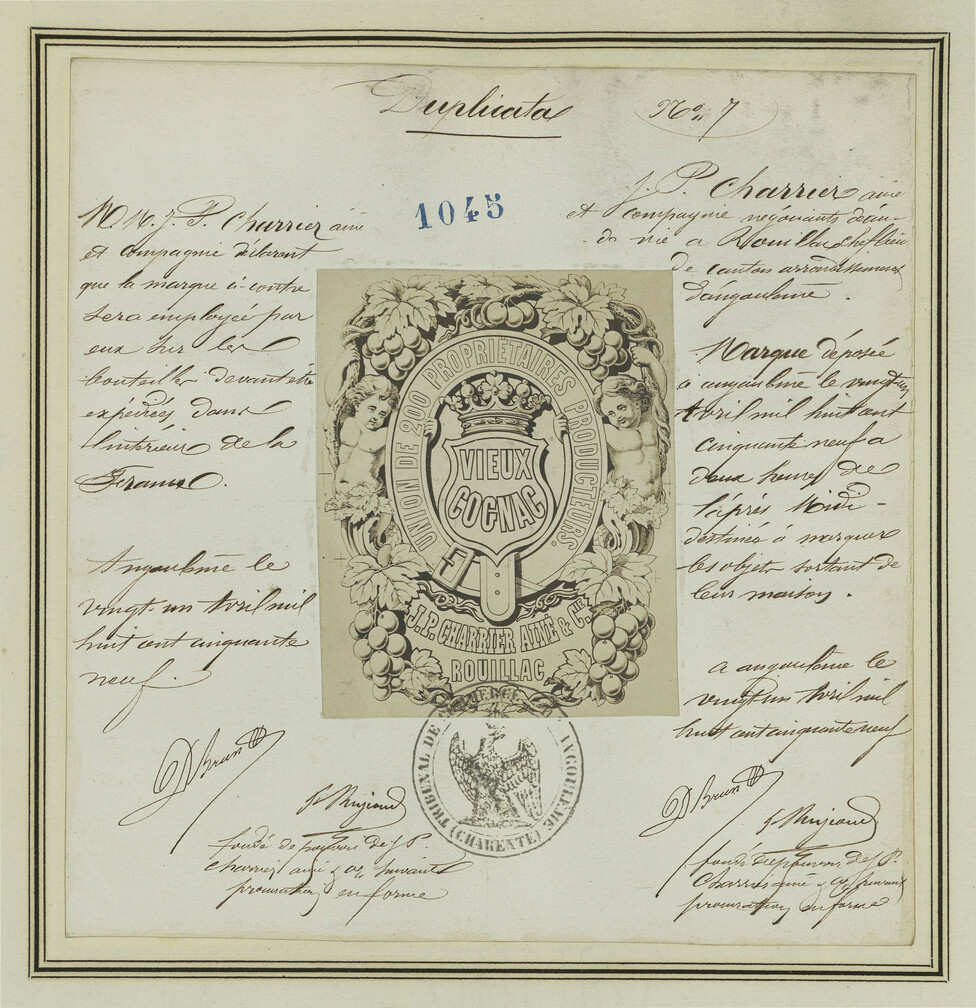 Duplicata
No 7
1045
M M. J. P. Charrier ainé
et compagnie déclarent
que la marque ci-contre
sera employée par
eux sur les
bouteilles devant être
expédiées dans
l'intérieur de la
France.
Angoulême le
vingt-un Avril mil
huit cent cinquante
neuf.
J. P. Charrier ainé
et compagnie négociants d'eau-
de vie a Rouillac chef lieu
de canton arrondissement
d'angoulême.
Marque déposée
a angoulême le vingt un
Avril mil huit cent
cinquante neuf a
deux heures de
l'après Midi -
destinée à marquer
les objets sortant de
leur maison.
a angoulême le
vingt un Avril mil
huit cent cinquante neuf
UNION DE 200 PROPRIÉTAIRES PRODUCTEURS.
VIEUX
COGNAC
J.P. CHARRIER AINÉ & CIE
ROUILLAC
TRIBUNAL DE COMMERCE ANGOULEME
(CHARENTE)
Brun
fondé de pouvoirs de J. P.
Charrier ainé & Ce suivant
procuration en forme
Brun
fondé de pouvoirs de J. P.
Charrier ainé & Ce suivant
procuration en forme